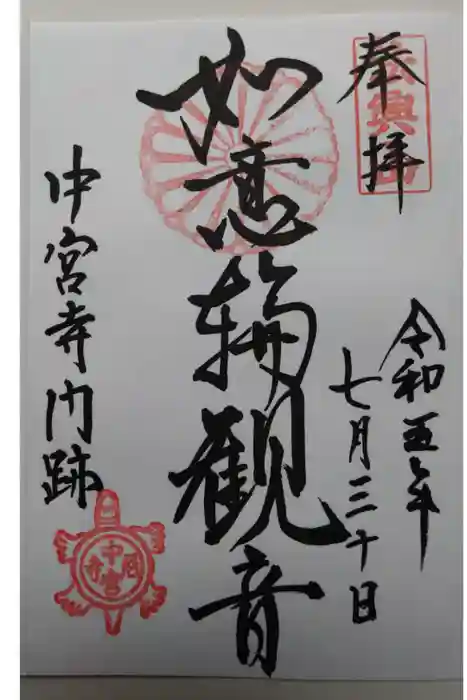 奉拝
令和五年
七月三十日
如意輪観音
中宮寺门跡